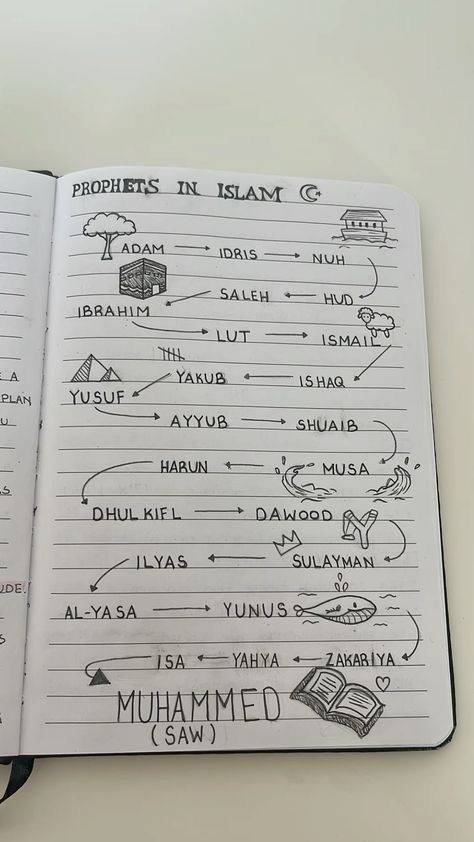 A
PLAN
PROPHETS IN ISLAM
ADAM IDRIS NUH
SALEH HUD
IBRAHIM
LUT ISMAIL
YAKUB ISHAQ
YUSUF
AYYUB SHUAIB
HARUN MUSA
DHULKIFL DAWOOD
ILYAS SULAYMAN
AL-YASA YUNUS
ISA YAHYA ZAKARIYA
MUHAMMED
(SAW)